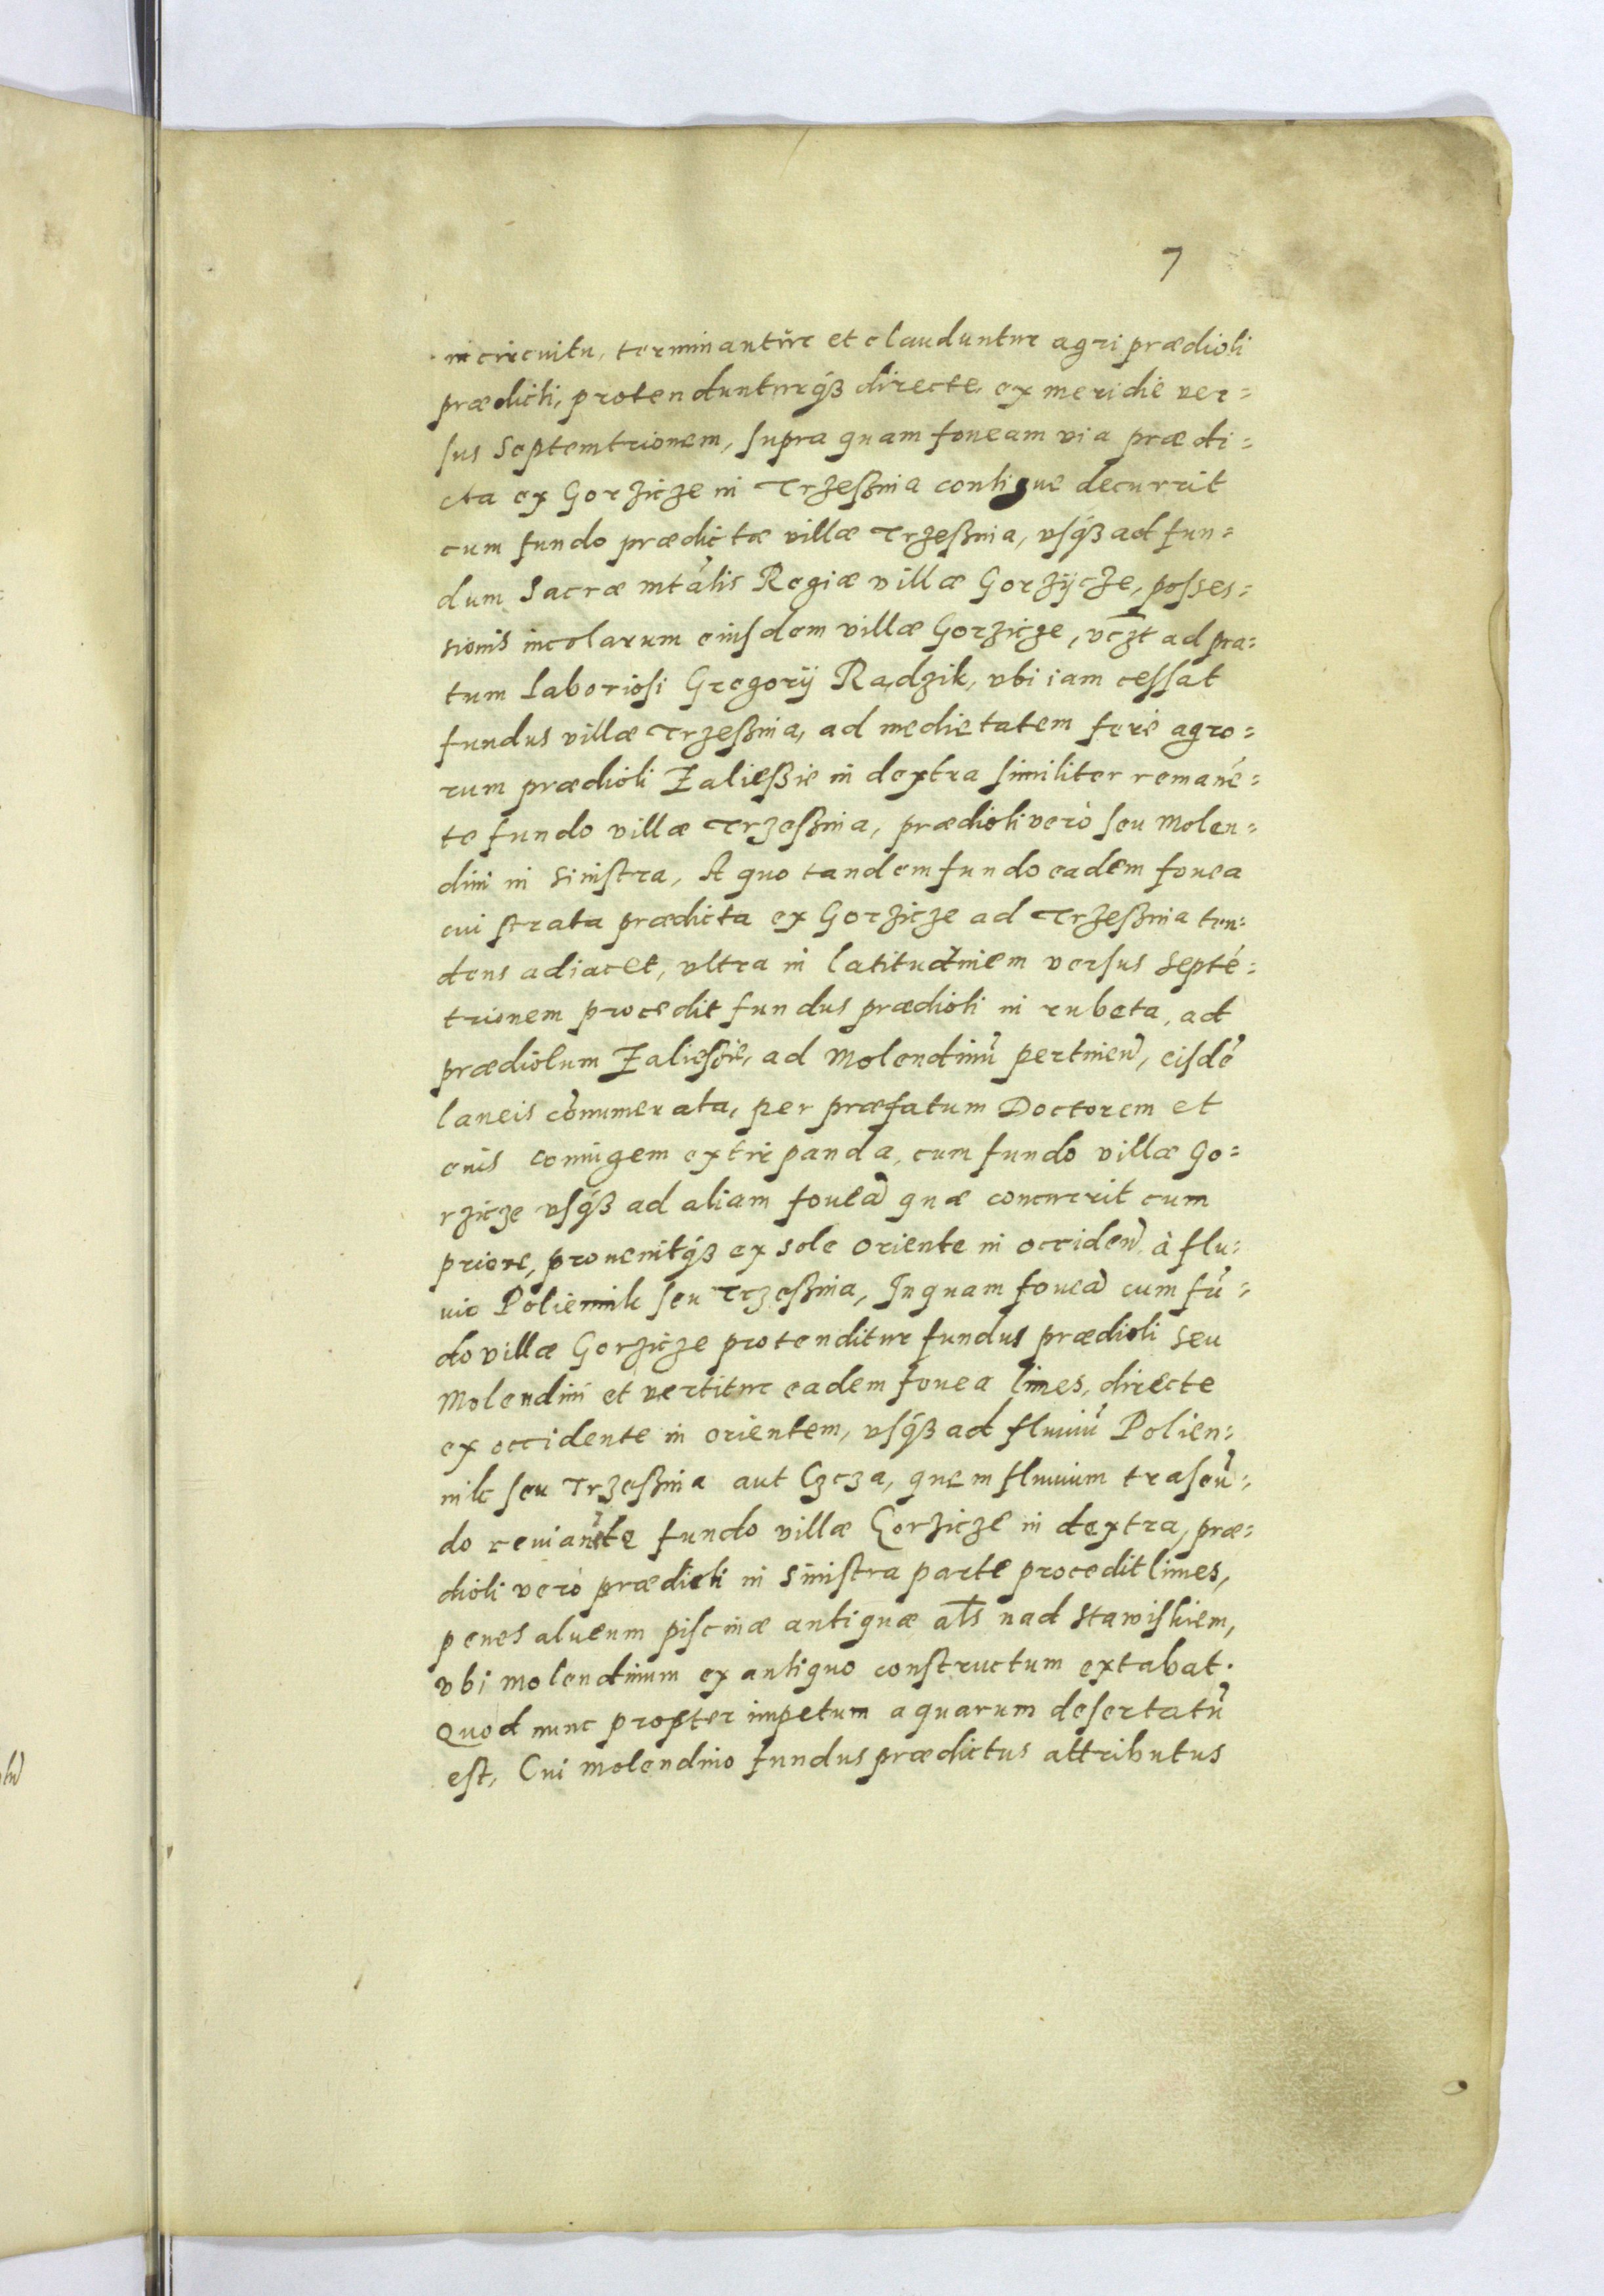 7
in circuitu, terminantur et clauduntur agri prædioli
prædicti, protendunturqȝ directe, ex meridie ver=
sus Septemtrionem, supra quam foueam via prædi=
cta ex Gorzicze in Trzeßnia contigue decurrit
cum fundo prædictæ villæ Trzeßnia, vsqȝ ad fun=
dum Sacræ mtális Regiæ villæ Gorzÿcze, posses=
sionis incolarum eiusdem villæ Gorzicze, vczt ad pra=
tum laboriosi Gregorÿ Radzik, vbi iam cessat
fundus villæ Trzeßnia, ad medietatem ferè agro=
rum prædioli Zaließie in dextra similiter remanē=
te fundo villæ Trzeßnia, prædioli verò seu Molen=
dini in sinistra, A quo tandem fundo eadem fouea
cui strata prædicta ex Gorzicze ad Trzeßnia ten=
dens adiacet, vltra in latitudiniem versus Septē=
trionem procedit fundus prædioli in rubeta, ad
prædiolum Zaliesie, ad Molendinū pertinen̄, eisdē
laneis cōnumerata, per præfatum Doctorem et
eius coniugem extirpanda, cum fundo villæ Go=
rzicze vsqȝ ad aliam foueā quæ concurrit cum
priore, prouenitqȝ ex sole oriente in occiden̄ à flu=
uio Poliennik seu Trzeßnia, In quam foueā cum fū=
do villæ Gorzicze protenditur fundus prædioli seu
Molendini et vertitur eadem fouea limes, directe
ex occidente in orientem, vsqȝ ad fluuiū Polien=
nik seu Trzeßnia aut Czcza, quem fluuium traseū=
do reuian̄te fundo villæ Gorzicze in dextra, præ=
dioli verò prædicti in sinistra parte procedit limes,
penes alueum piscinæ antiquæ als nad Stawiskiem,
vbi molendinum ex antiquo constructum extabat.
Quod nunc propter impetum aquarum desertatū
est, Cui molendino fundus prædictus attributus